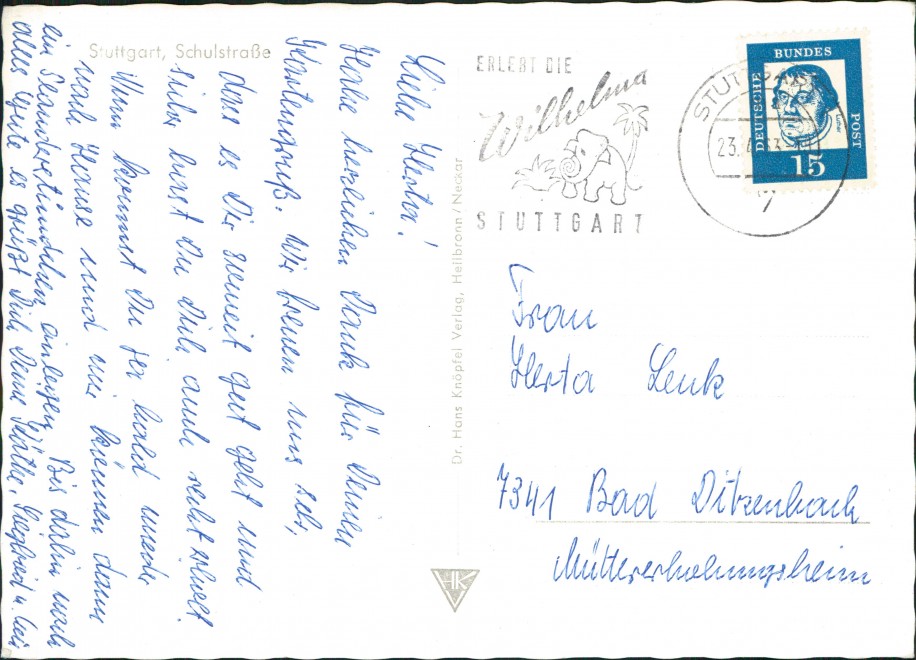 Stuttgart, Schulstraße
Liebe Herta!
Habe herzlichen Dank für Deinen
Kartengruß. Wir freuen uns sehr,
dass es Dir soweit gut geht und
sicher hast Du Dich auch recht erholt.
Nun kommst Du ja bald wieder
nach Hause und wir können dann
ein anlegen. Bis dahin noch
alles Gute es grüßt Dich Deine Käthe, Siegfried u.
Dr. Hans Knöpfel Verlag, Heilbronn/Neckar
HK
ERLEBT DIE
Wilhelma
STUTTGART
STUTTGART
23.
7
DEUTSCHE
BUNDES
POST
Luther
15
Frau
Herta Lenk
7341 Bad Ditzenbach
Müttererholungsheim